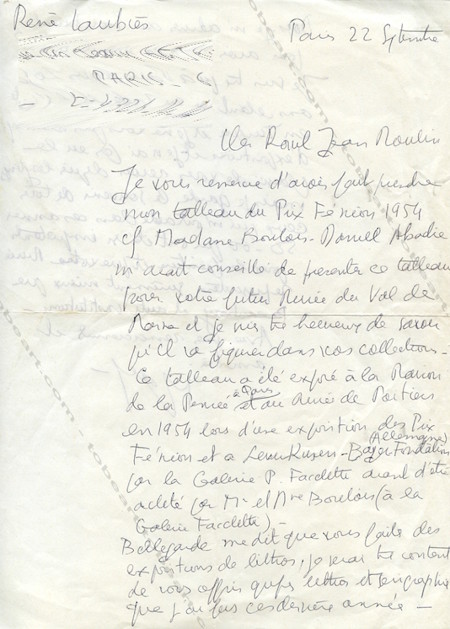 René Laubiès
PARIS - 6
Paris 22 Septembre
Cher Raoul Jean Moulin
Je vous remercie d'avoir fait prendre
mon tableau du Prix Fénéon 1954
cf Madame Boulois - Daniel Abadie
m'avait conseillé de présenter ce tableau
pour votre futur Musée du Val de
Marne et je suis très heureux de savoir
qu'il va figurer dans vos collections -
Ce tableau a été exposé à la Maison
de la Pensée à Paris et au Musée de Poitiers
en 1954 lors d'une exposition des Prix
Fénéon et a Leverkusen - (Allemagne) Bayer Fondation
par la Galerie P. Facchetti avant d'être
acheté par Mr et Mme Boulois (à la
Galerie Facchetti) -
Bellegarde me dit que vous faites des
expositions de lithos, je serai très content
de vous offrir qques lithos et sérigraphies
que j'ai fait ces dernières années -